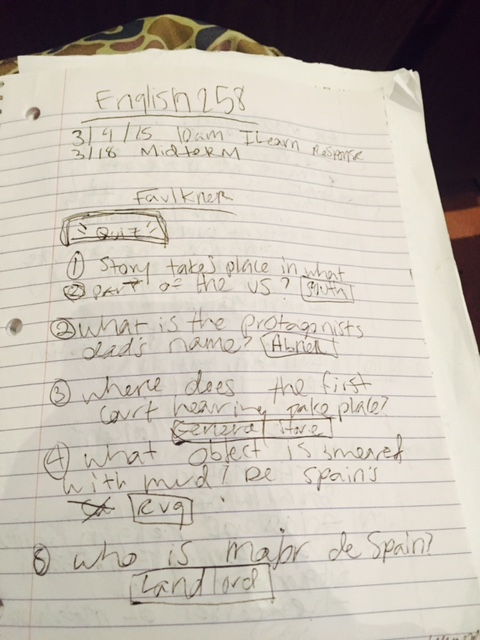 English 258
3/4/15 10am ILearn Response
3/18 Midterm
Faulkner
Quiz
① Story takes place in what
② part of the US? South
② What is the protagonists
dad's name? Abner
③ where does the first
court hearing take place?
General Store
④ what object is smeared
with mud? De Spain's
Rug
⑤ who is major de Spain?
Landlord